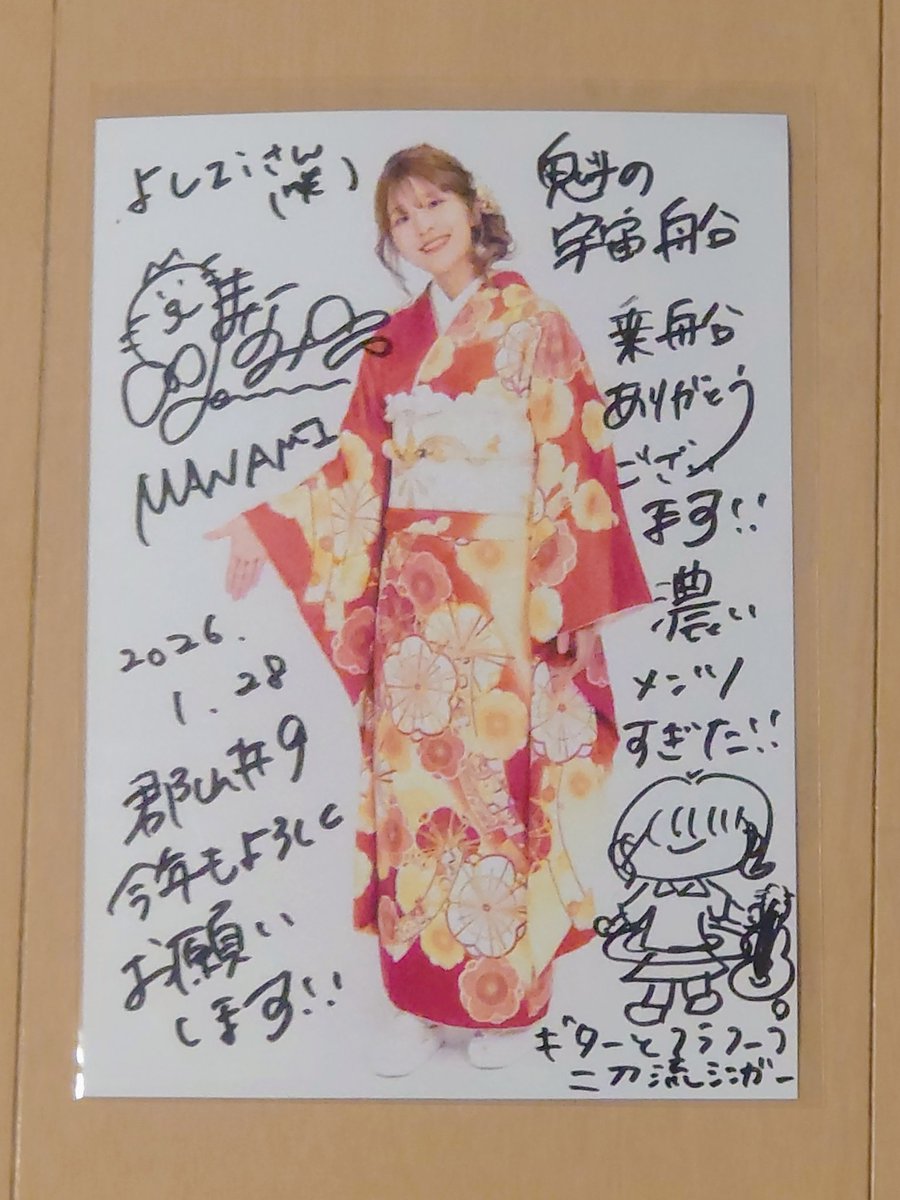 よしこiさん
(笑)
まなみ
MANAMI
2026.
1.28
郡山#9
今年もよろしく
お願い
します!!
魁の
宇宙船
乗船
ありがとう
ござい
ます!!
濃い
メンツ
すぎた!!
ギターとフラフープ
二刀流シンガー